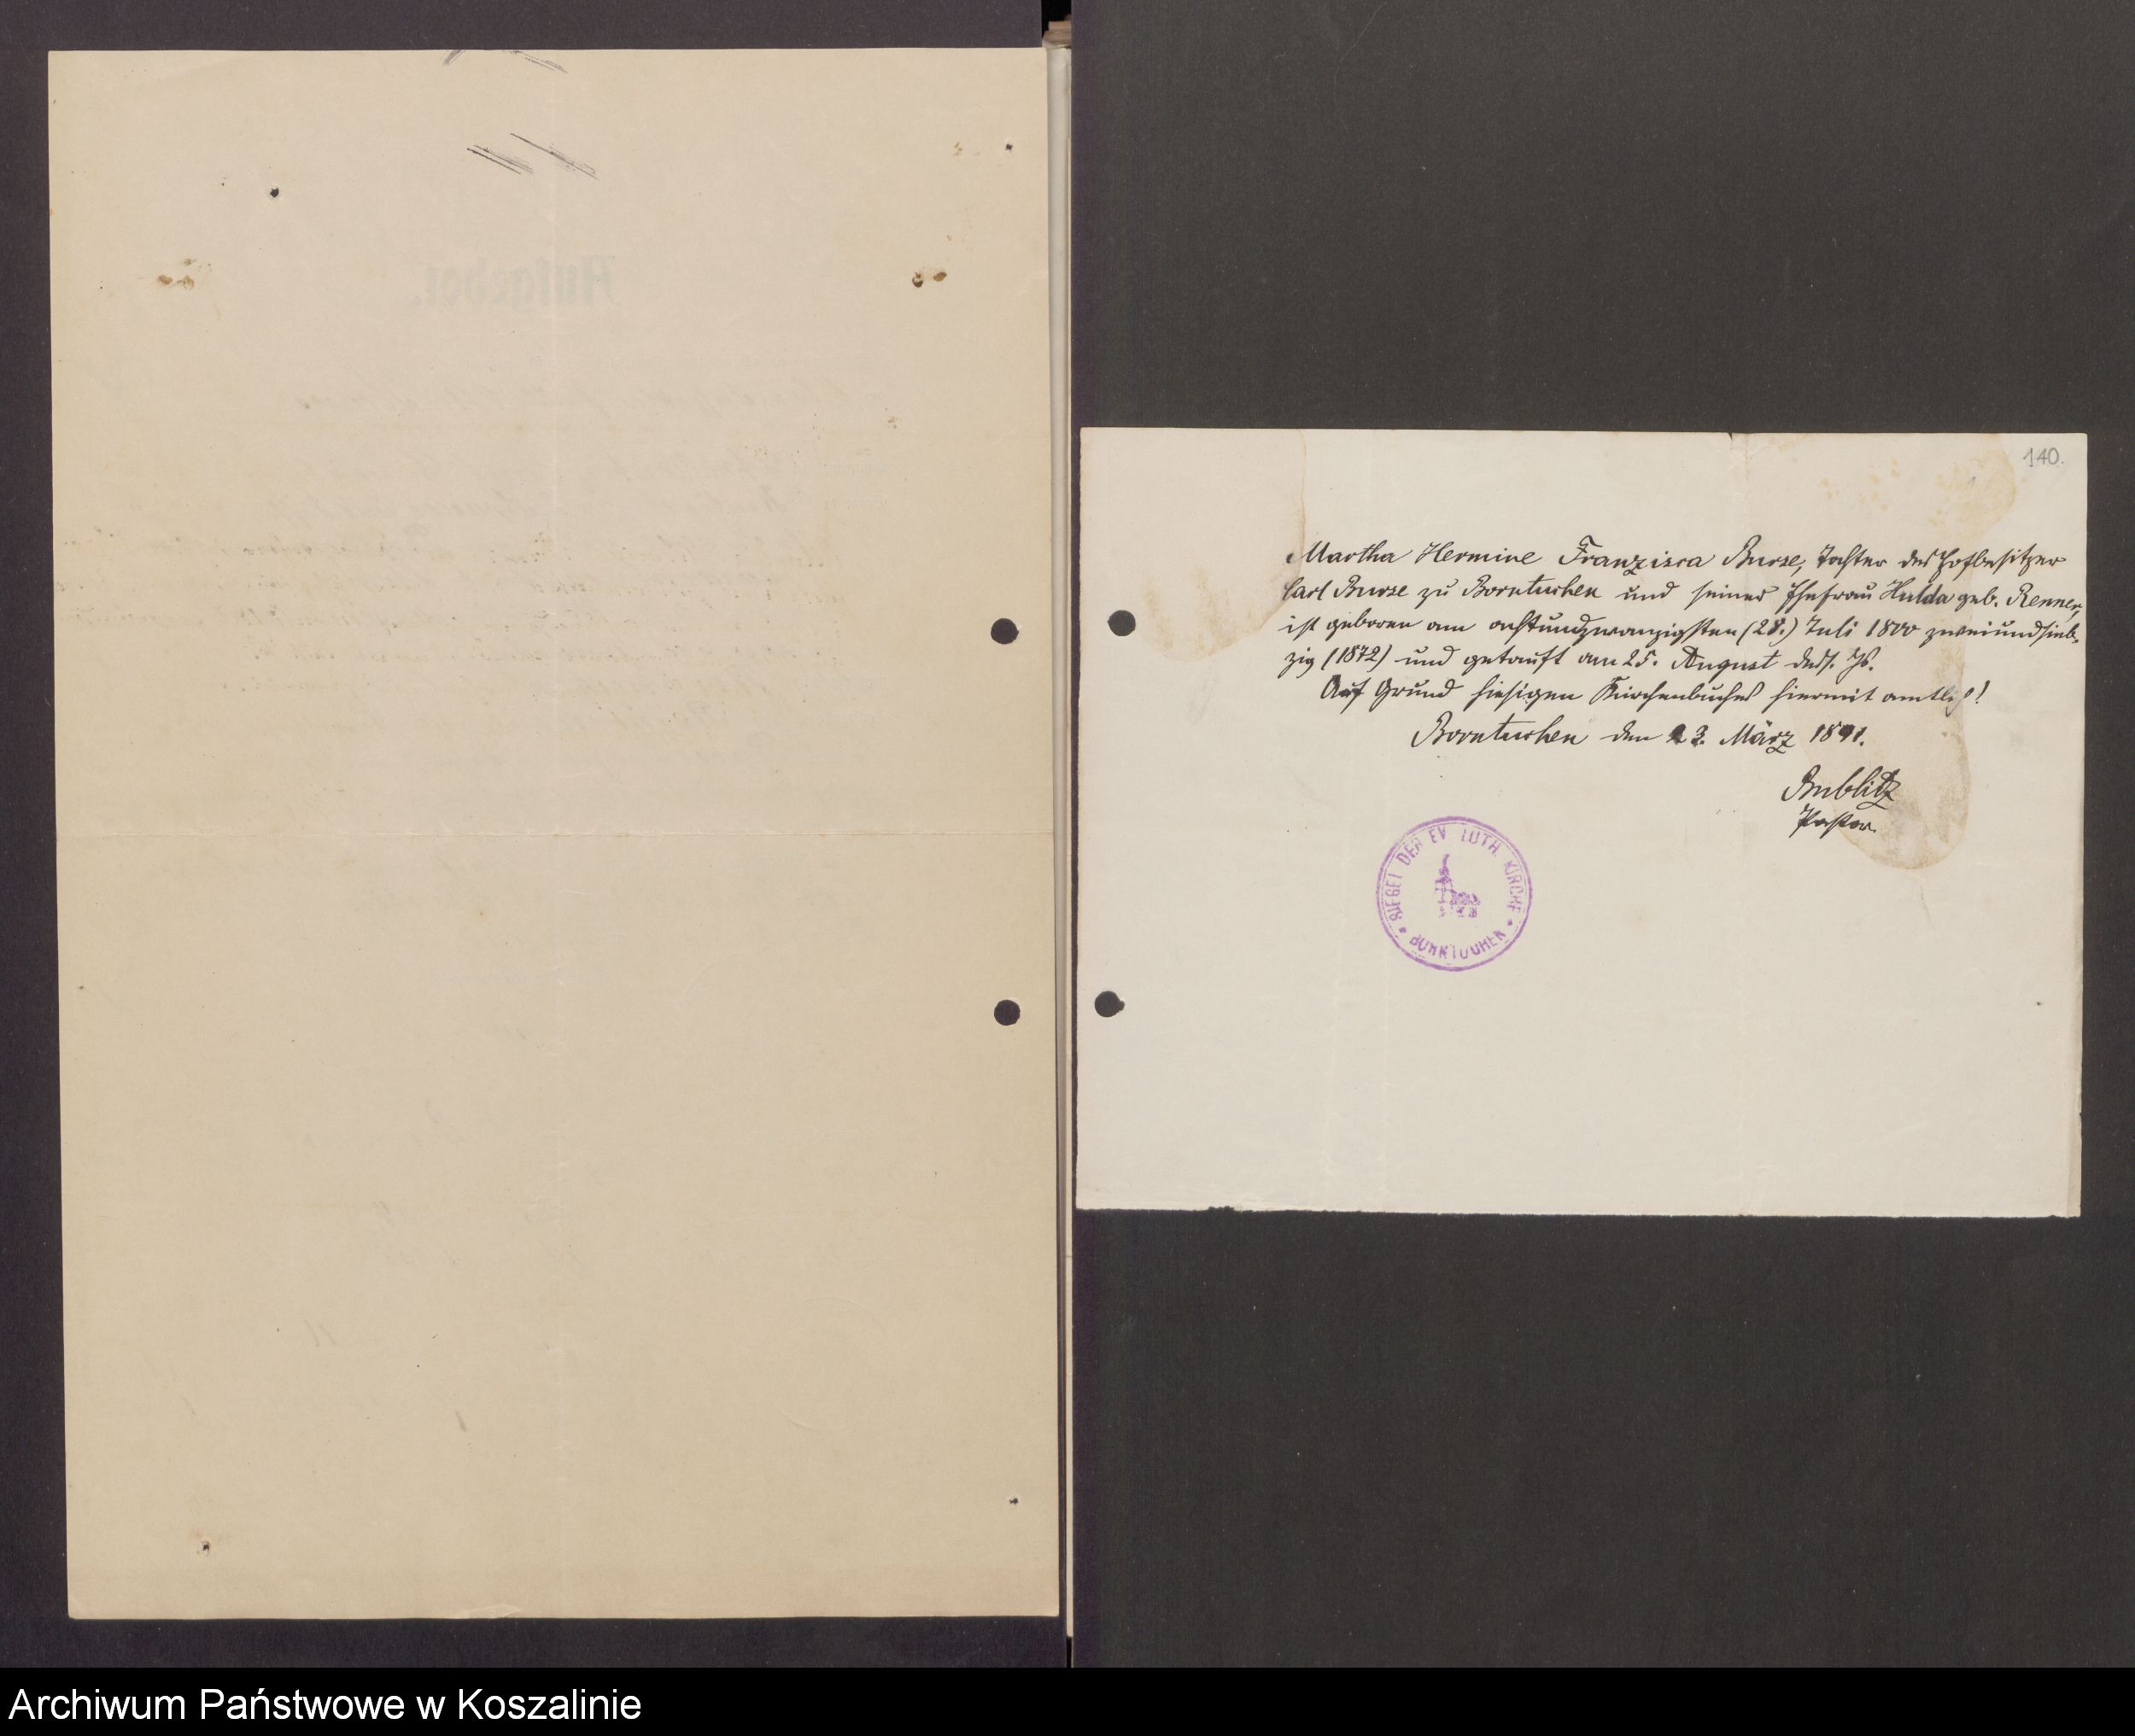 Aufgebot.
140.
Martha Hermine Franzisca Burse, Tochter des Hofbesitzer
Carl Burse zu Borntuchen und seiner Ehefrau Hulda geb. Renner,
ist geboren am achtundzwanzigsten (28.) Juli 1800 zweiundsieb-
zig (1872) und getauft am 25. August dess. Js.
Auf Grund hiesigen Kirchenbuches hiermit amtlich!
Borntuchen den 23. März 1891.
Bublitz
Pastor.
SIEGEL DER EV. LUTH. KIRCHE
BORNTUCHEN
Archiwum Państwowe w Koszalinie